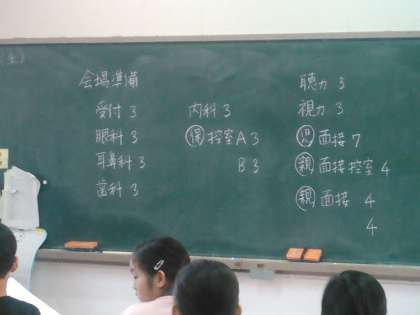 会場準備
受付 3
眼科 3
耳鼻科 3
歯科 3
内科 3
保 控室 A 3
B 3
聴力 3
視力 3
児 面接 7
親 面接控室 4
親 面接 4
4